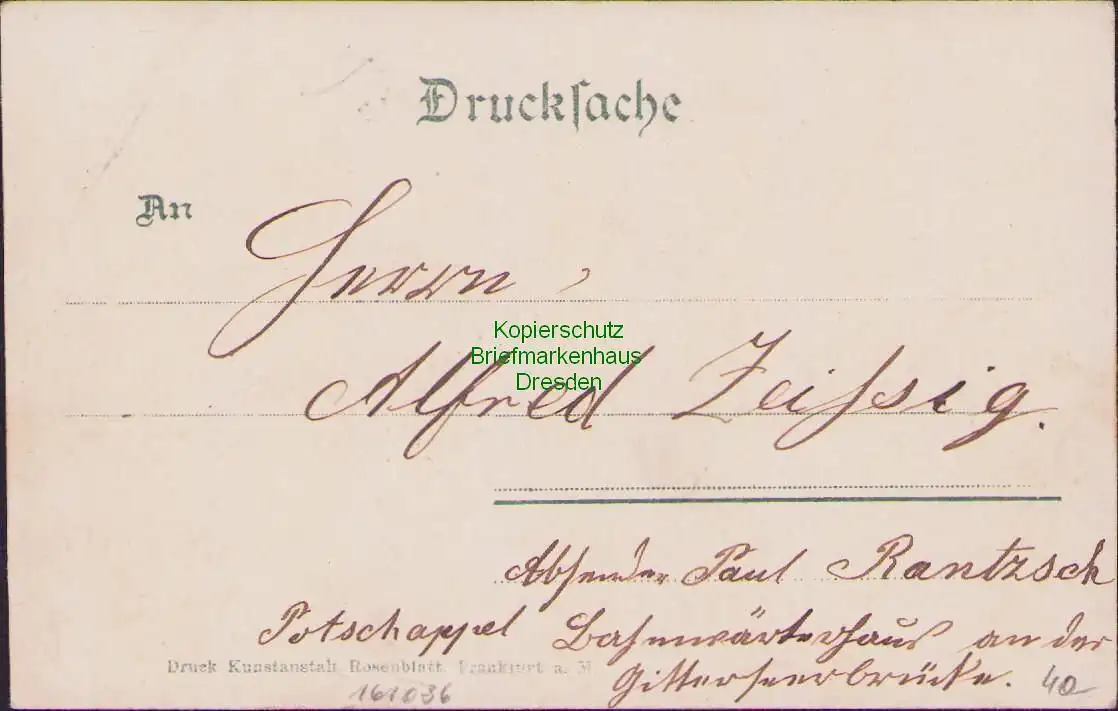 Drucksache
An
Herrn
Kopierschutz
Briefmarkenhaus
Dresden
Alfred Zeißig.
Absender Paul Rantzsch
Potschappel Bahnwärterhaus an der
Gitterseerbrücke. 40
Druck Kunstanstalt Rosenblatt, Frankfurt a. M
161036